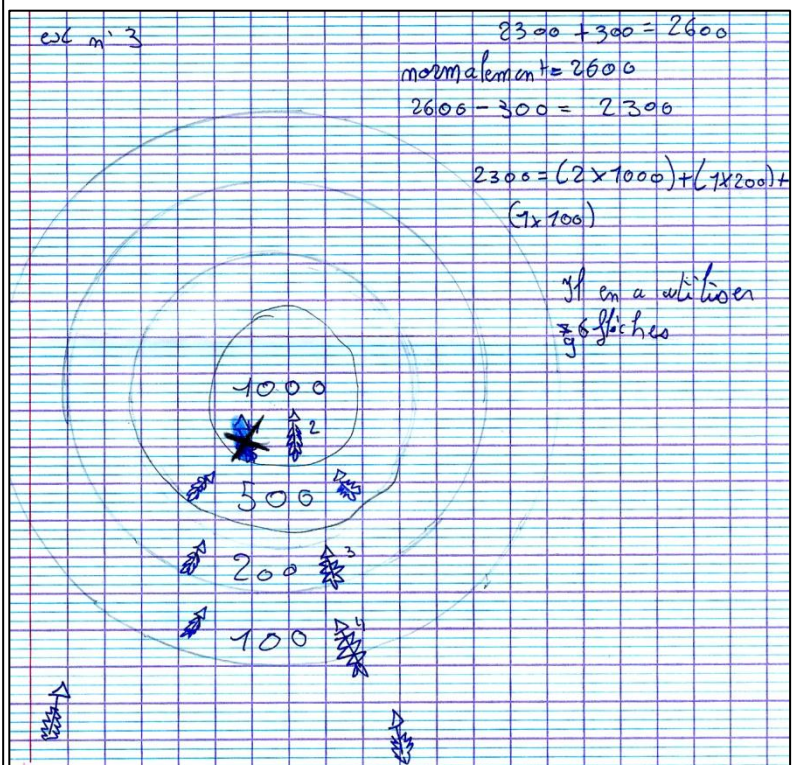 exc n° 3
2300 + 300 = 2600
normalement = 2600
2600 - 300 = 2300
2300 = (2 x 1000) + (1 x 200) +
(1 x 100)
Il en a utiliser
6 flèches
1000
2
500
200
3
100
4